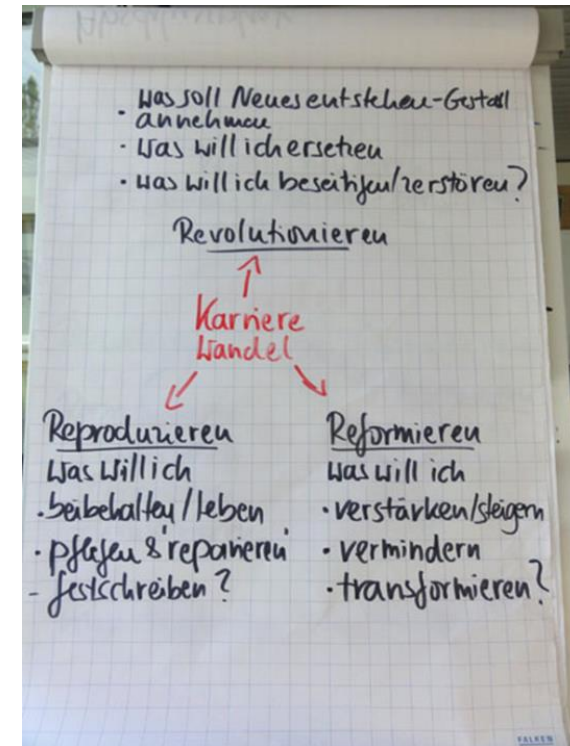 · Was soll Neues entstehen-Gestalt
annehmen
· Was will ich ersetzen
· Was will ich beseitigen/zerstören?
Revolutionieren
Karriere
Wandel
Reproduzieren
Was will ich
· beibehalten/leben
· pflegen & "reparieren"
- festschreiben?
Reformieren
Was will ich
· verstärken/steigern
· vermindern
· transformieren?
FALKEN